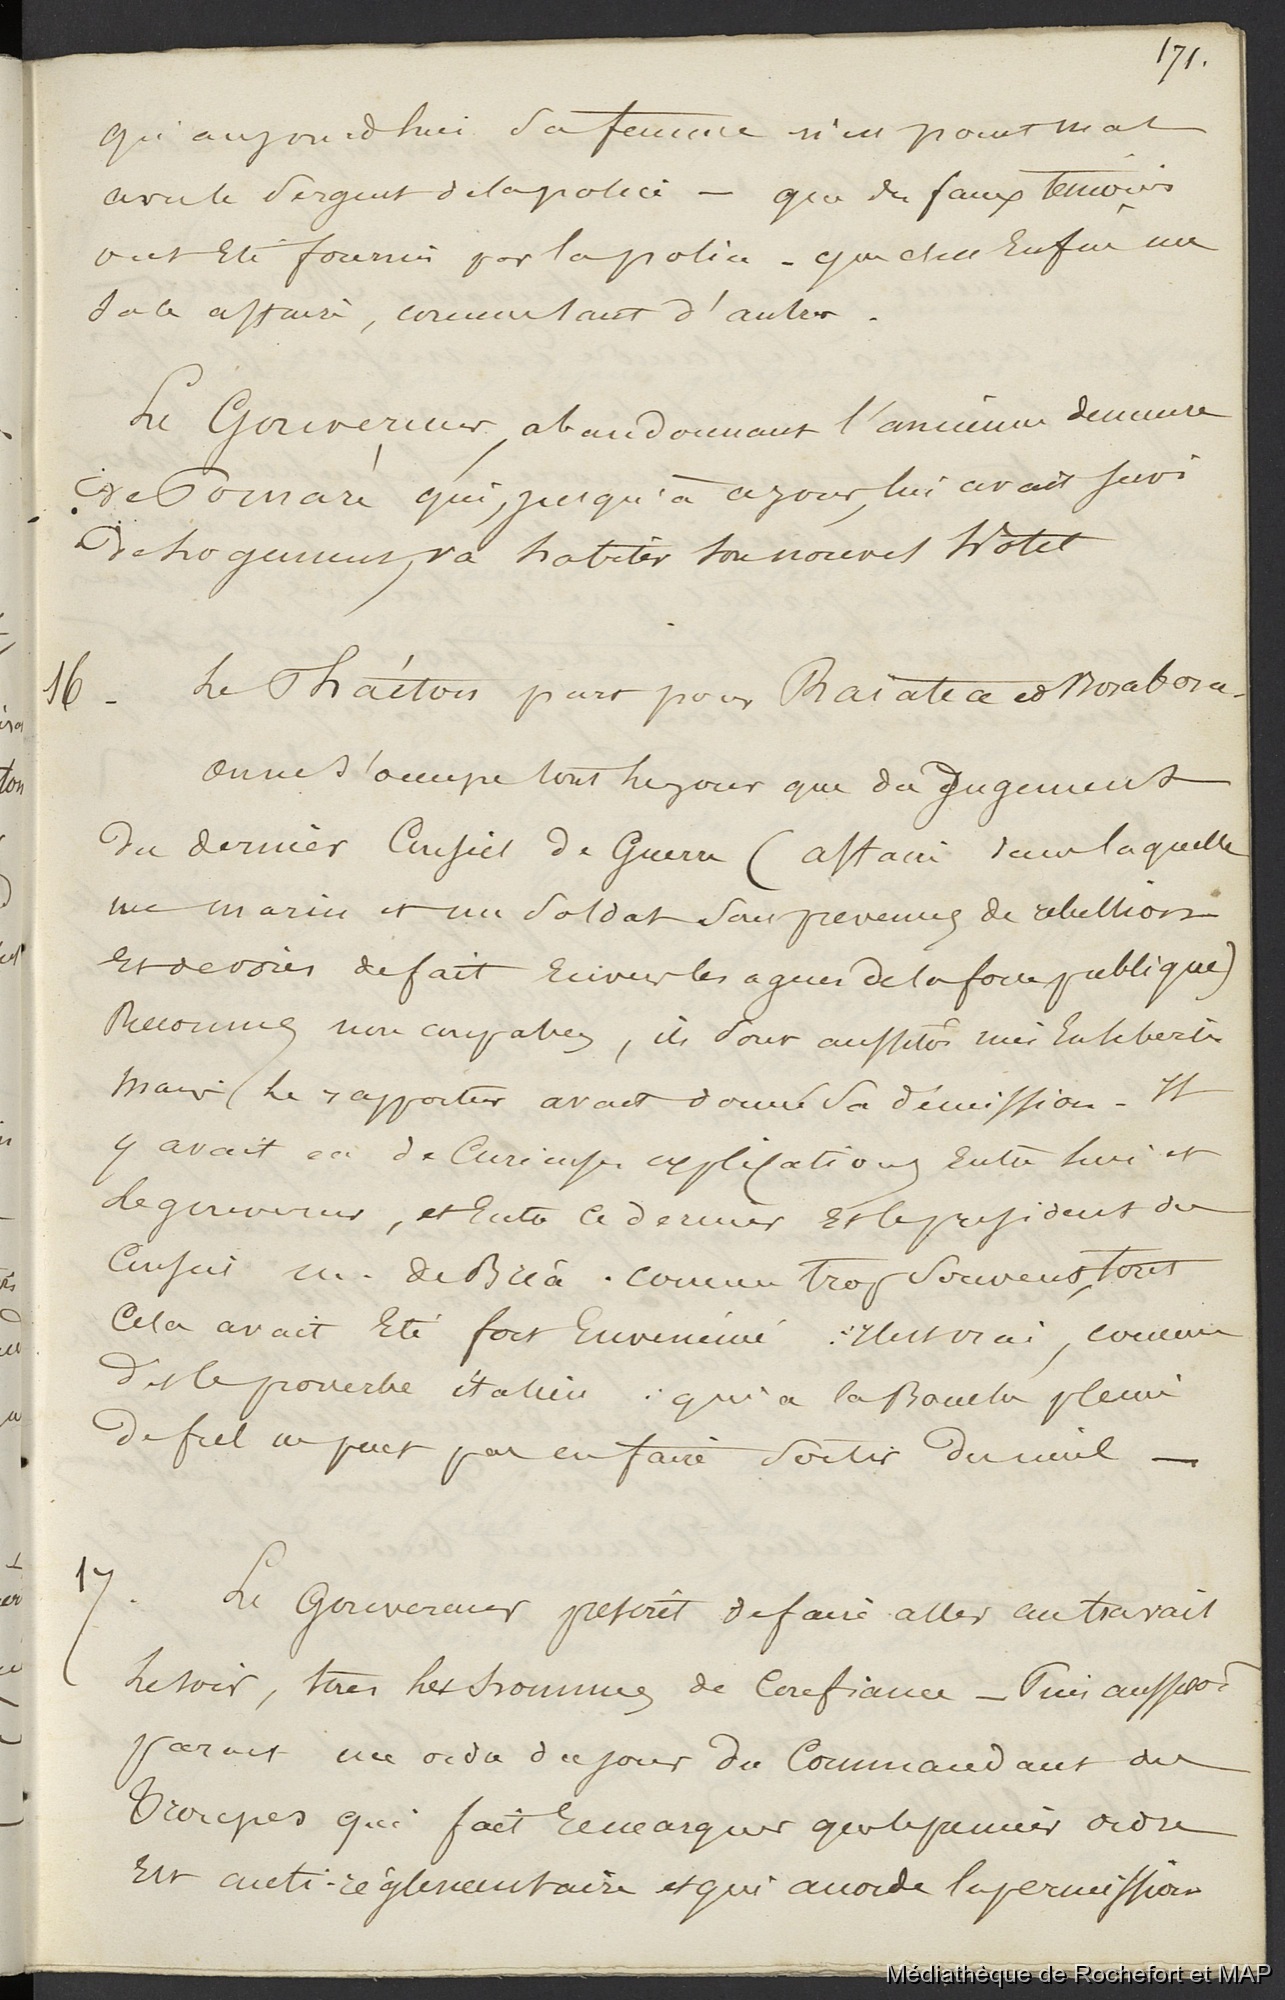 171.
qu'aujourd'hui sa femme n'en point mal
avec le sergent de la police — que de faux témoins
ont été fournis par la police - que c'est enfin une
sale affaire, comme tant d'autres.
Le Gouverneur, abandonnant l'ancienne demeure
de Pomaré qui, jusqu'à ce jour, lui avait servi
de logement, va habiter son nouvel hôtel
16 - Le Phaéton part pour Raiatea et Borabora -
on ne s'occupe tout le jour que du jugement
du dernier Conseil de Guerre (affaire dans laquelle
un marin et un soldat sont prévenus de rébellion
et de voies de fait envers les agents de la force publique)
Reconnus non coupables, ils sont aussitôt mis en liberté
mais le rapporteur avait donné sa démission - Il
y avait eu de curieuses explications entre lui et
le gouverneur, et entre ce dernier et le président du
Conseil m. de Bréa. comme trop souvent, tout
cela avait été fort envenimé : il est vrai, comme
dit le proverbe italien : qui a la Bouche pleine
de fiel ne peut pas en faire sortir du miel —
17. Le Gouverneur prescrit de faire aller au travail
le soir, tous les hommes de confiance — Puis aussitôt
parait un ordre du jour du Commandant des
Troupes qui fait remarquer que le premier ordre
est anti-réglementaire et qui accorde la permission
Médiathèque de Rochefort et MAP